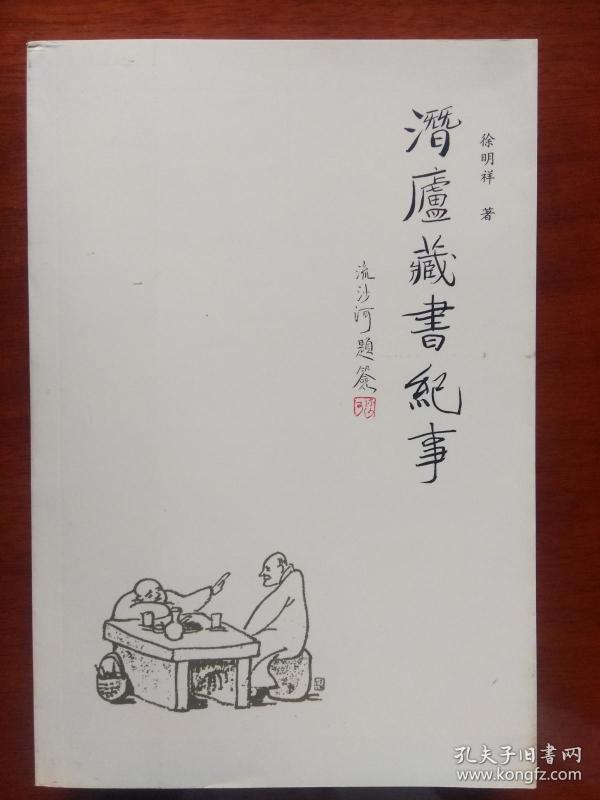 徐明祥 著
潛廬藏書紀事
流沙河題簽
孔夫子旧書网
www.kongfz.com